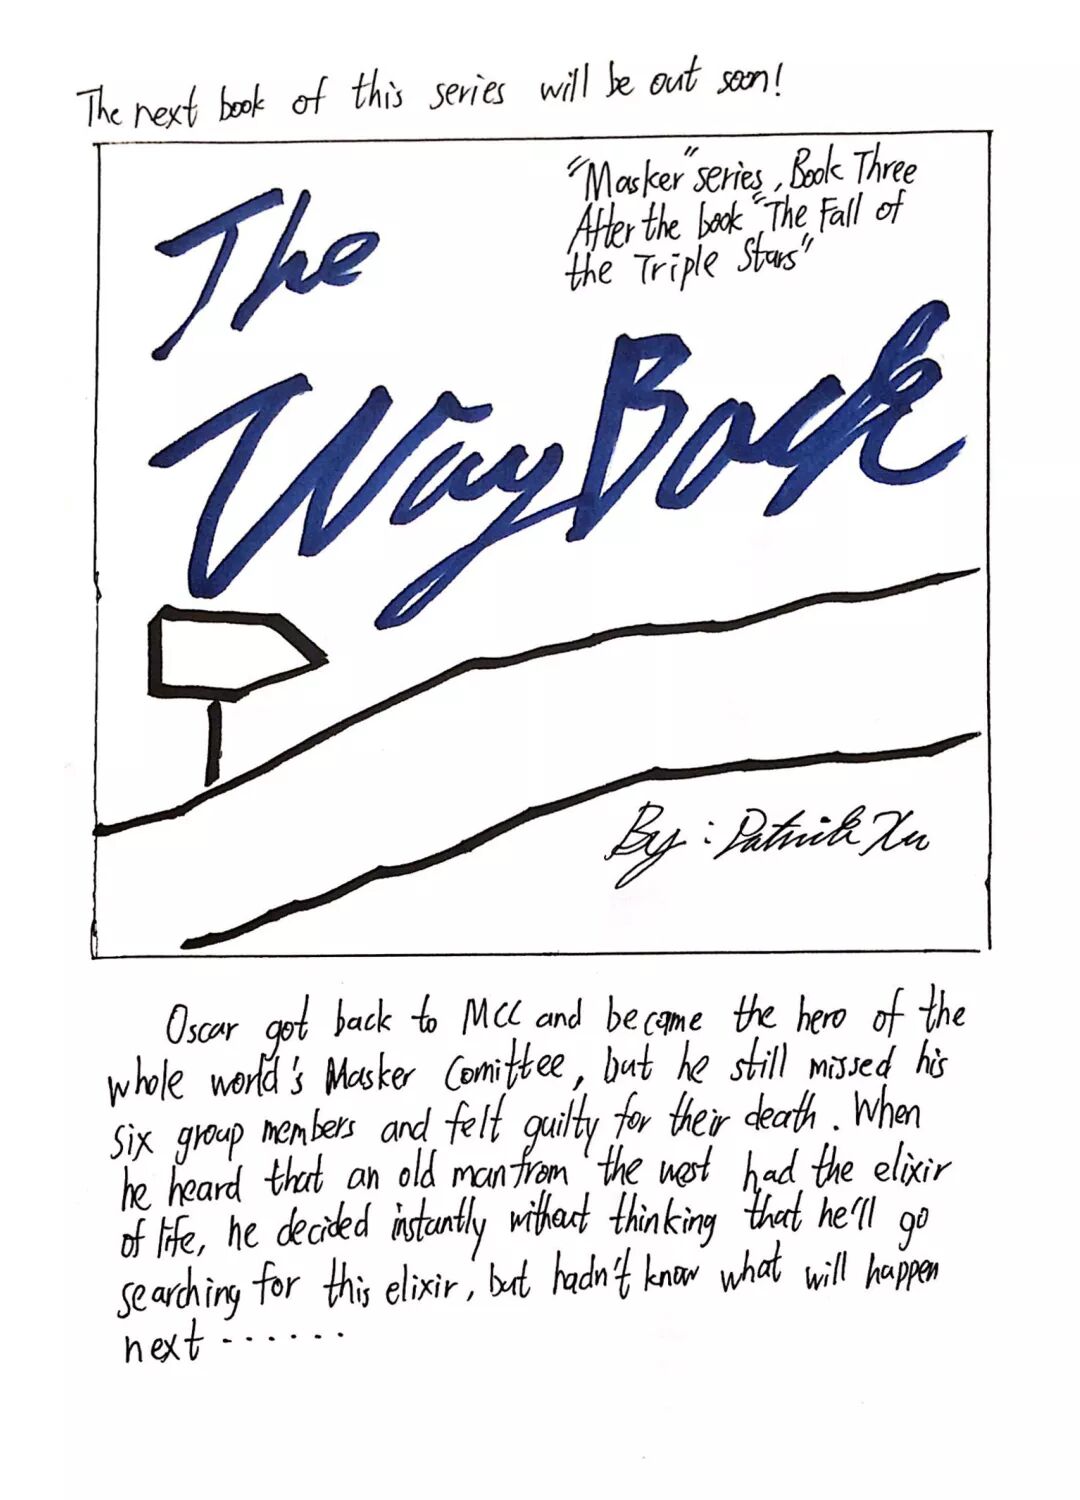 The next book of this series will be out soon!
"Masker" series, Book Three
After the book "The Fall of
the Triple Stars"
The
Way Back
By: Patrick Xu
Oscar got back to MCC and became the hero of the
whole world's Masker Comittee, but he still missed his
six group members and felt guilty for their death. When
he heard that an old man from the west had the elixir
of life, he decided instantly without thinking that he'll go
searching for this elixir, but hadn't know what will happen
next ......